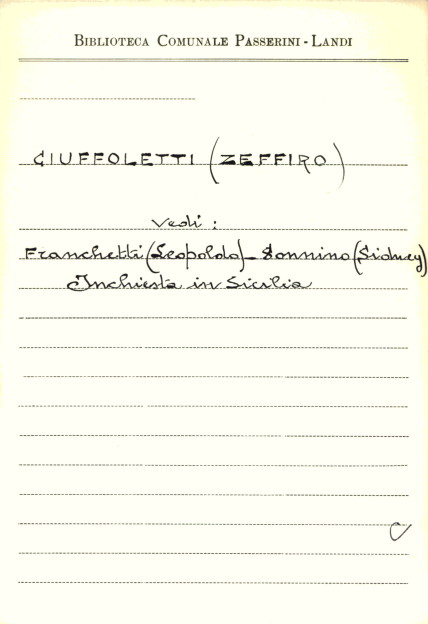 BIBLIOTECA COMUNALE PASSERINI - LANDI
GIUFFOLETTI (ZEFFIRO)
Vedi :
Franchetti (Leopoldo) - Sonnino (Sidney)
Inchiesta in Sicilia
C